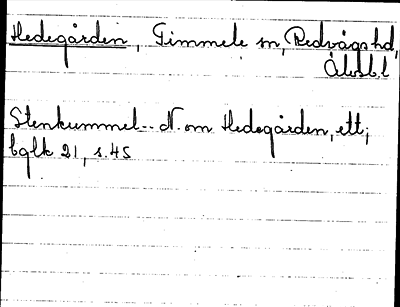 Hedegården, Timmele sn, Redvägs hd,
Älvsb.l
Stenkummel.. N. om Hedegården, ett;
bglk 21, s. 45